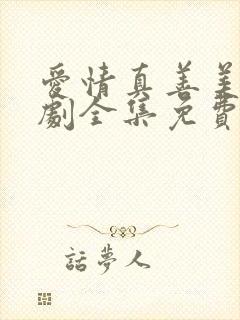 愛情真善美
劇全集免費
話夢人